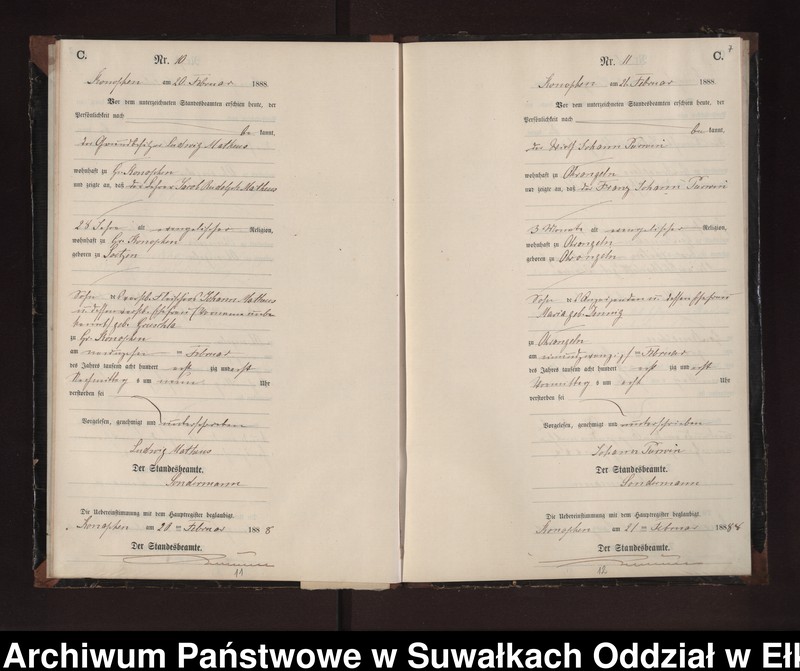 C.
Nr. 10
Konopken am 20. Februar 1888.
Vor dem unterzeichneten Standesbeamten erschien heute, der
Persönlichkeit nach
be kannt,
der Grundbesitzer Ludwig Matheus
wohnhaft zu Gr. Konopken
und zeigte an, daß der Lehrer Jacob Rudolph Matheus
28 Jahre alt evangelischer Religion,
wohnhaft zu Gr. Konopken
geboren zu
Sohn des verst. Fleischers Johann Matheus
und dessen verst. Ehefrau (Vorname unbe
kannt) geb.
zu Gr. Konopken
am ten Februar
des Jahres tausend acht hundert acht zig und acht
Nachmittag s um neun Uhr
verstorben sei
Vorgelesen, genehmigt und unterschrieben
Ludwig Matheus
Der Standesbeamte.
Sondermann
Die Uebereinstimmung mit dem Hauptregister beglaubigt.
Konopken am 20 ten Februar 1888
Der Standesbeamte.
11
7
C.
Nr. 11
Konopken am 21. Februar 1888.
Vor dem unterzeichneten Standesbeamten erschien heute, der
Persönlichkeit nach
be kannt,
der Wirth Johann
wohnhaft zu
und zeigte an, daß der Franz Johann
3 Monate alt evangelischer Religion,
wohnhaft zu
geboren zu
Sohn des Anzeigenden u. dessen Ehefrau
Maria geb.
zu
am einundzwanzigsten Februar
des Jahres tausend acht hundert acht zig und acht
Vormittag s um acht Uhr
verstorben sei
Vorgelesen, genehmigt und unterschrieben
Johann
Der Standesbeamte.
Sondermann
Die Uebereinstimmung mit dem Hauptregister beglaubigt.
Konopken am 21 ten Februar 1888
Der Standesbeamte.
12
Archiwum Państwowe w Suwałkach Oddział w Eł